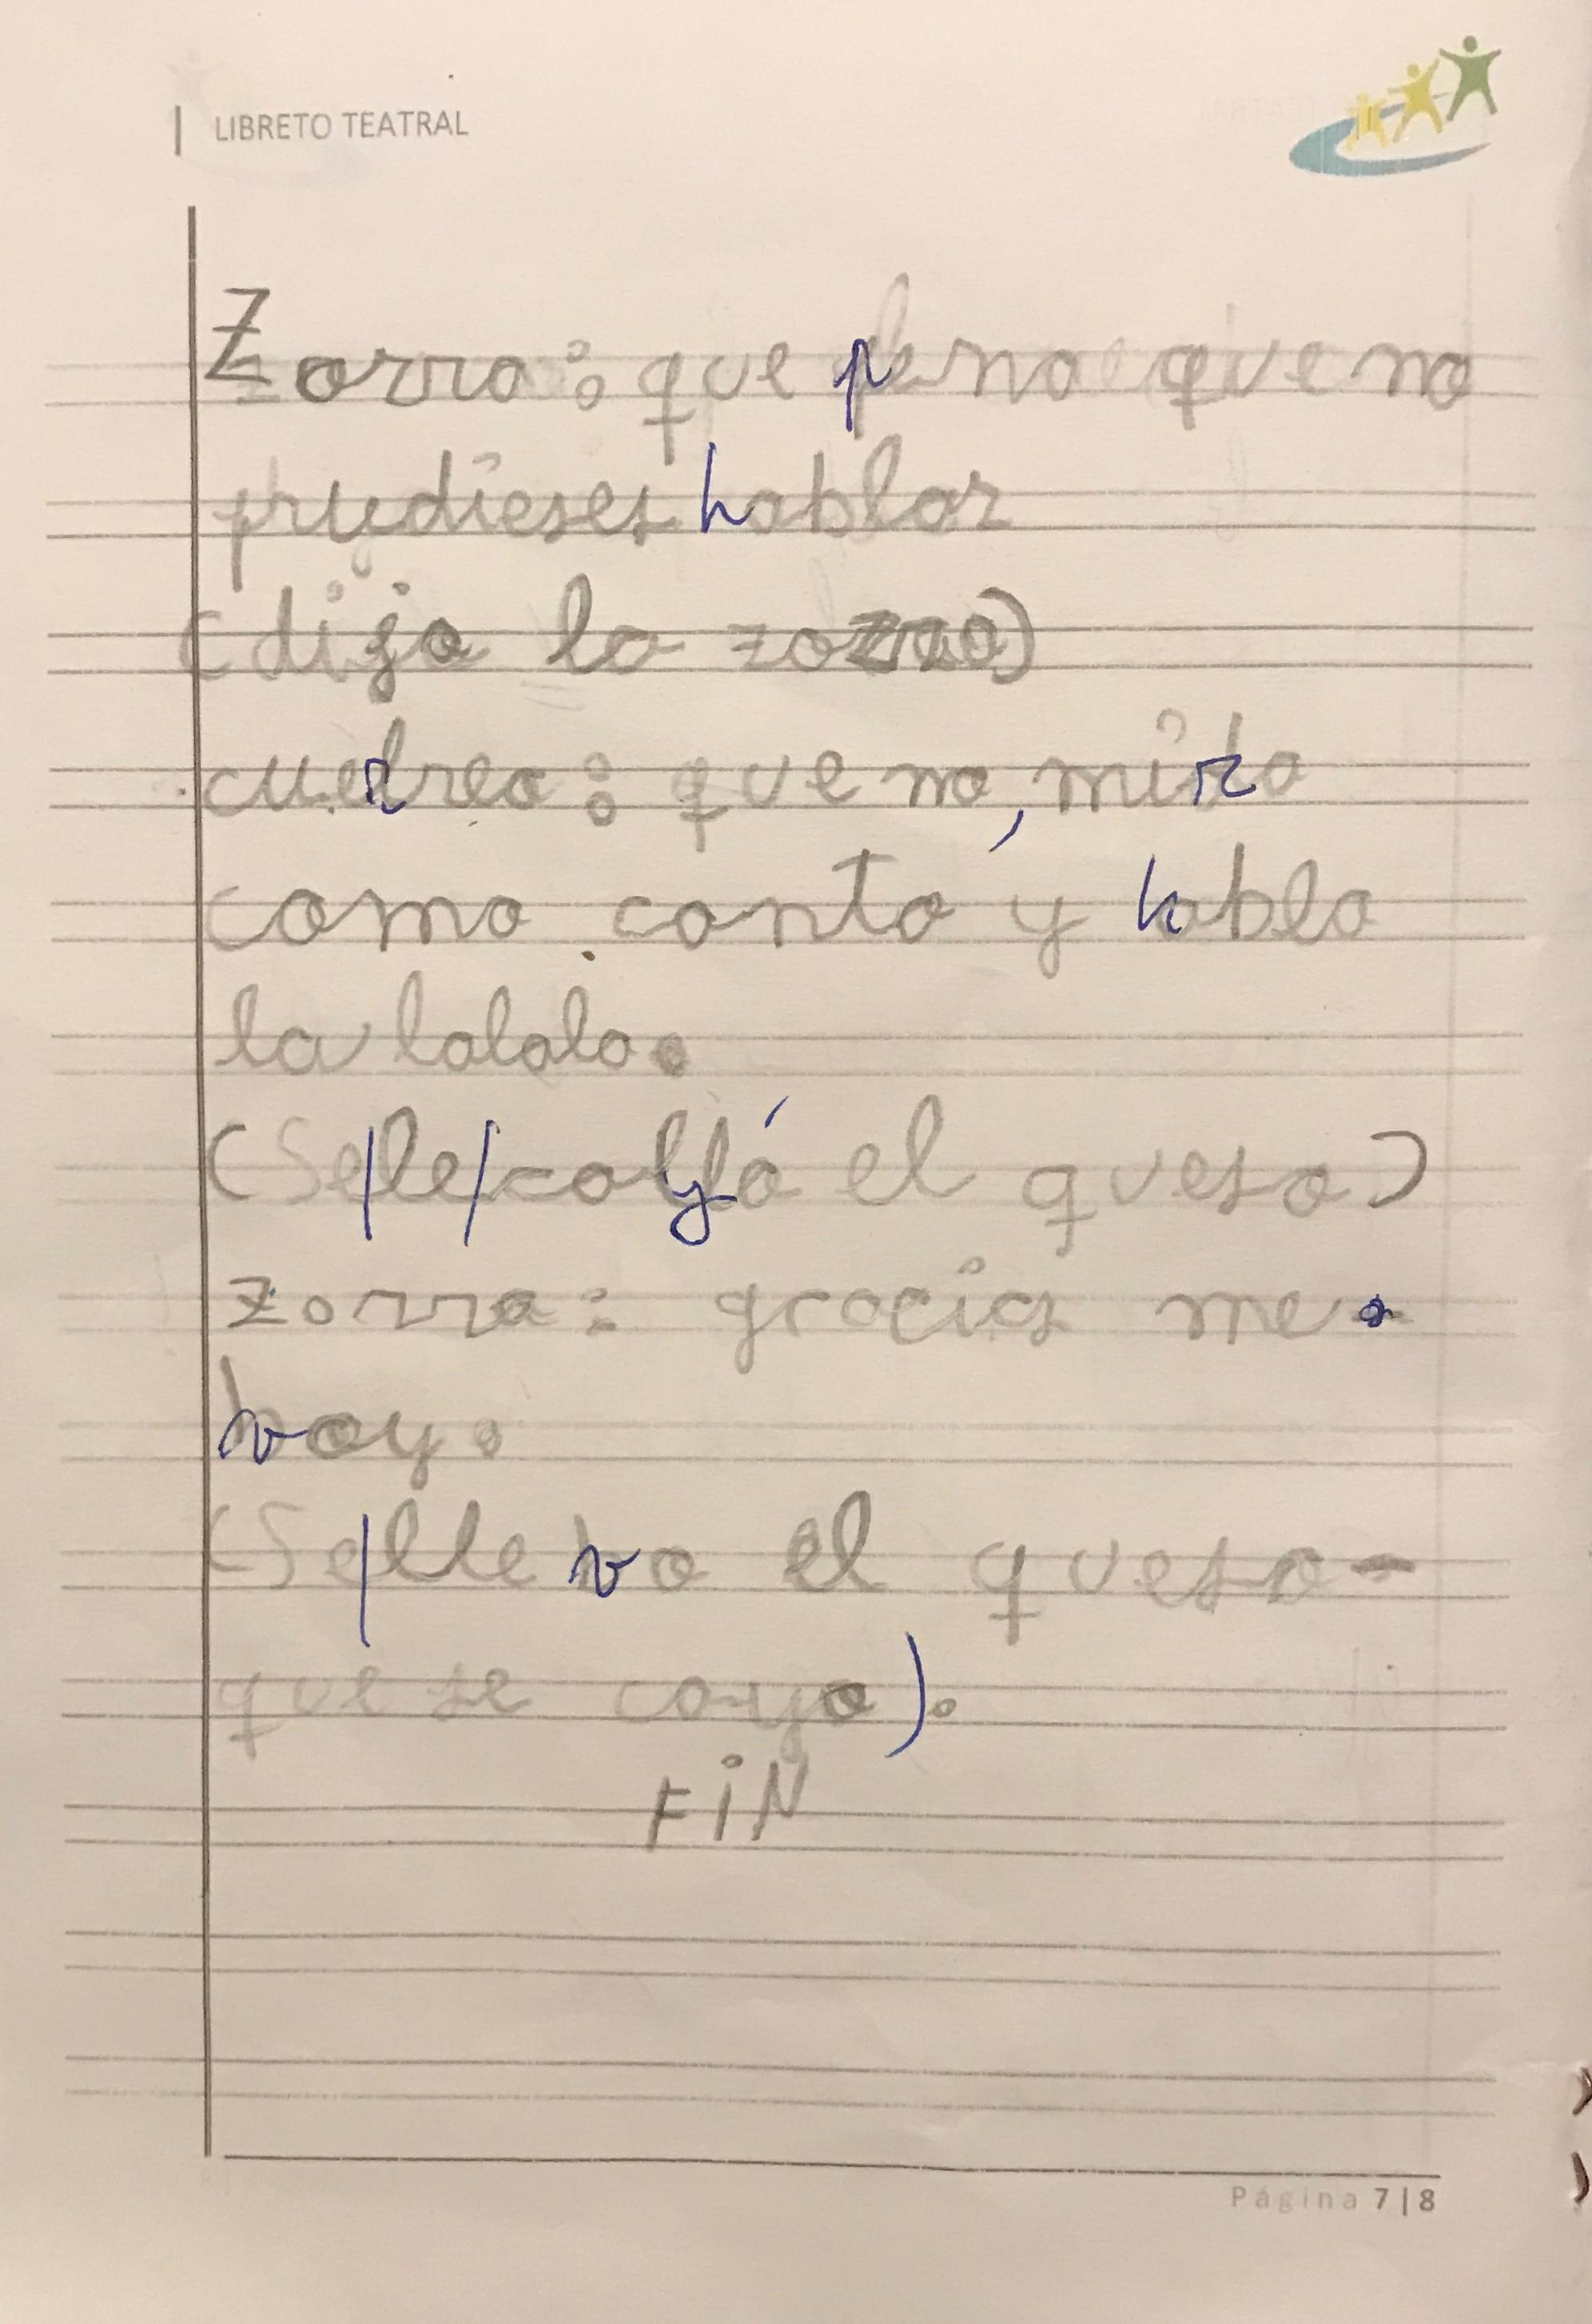 LIBRETO TEATRAL
Zorra: que pena que no
pudieses hablar
(dijo la zorra)
cuervo: que no, mira
como canto y hablo
la lalala.
(Se le cayó el queso)
Zorra: gracias me
voy.
(Se llevo el queso-
que se cayo).
FiN
Página 7|8